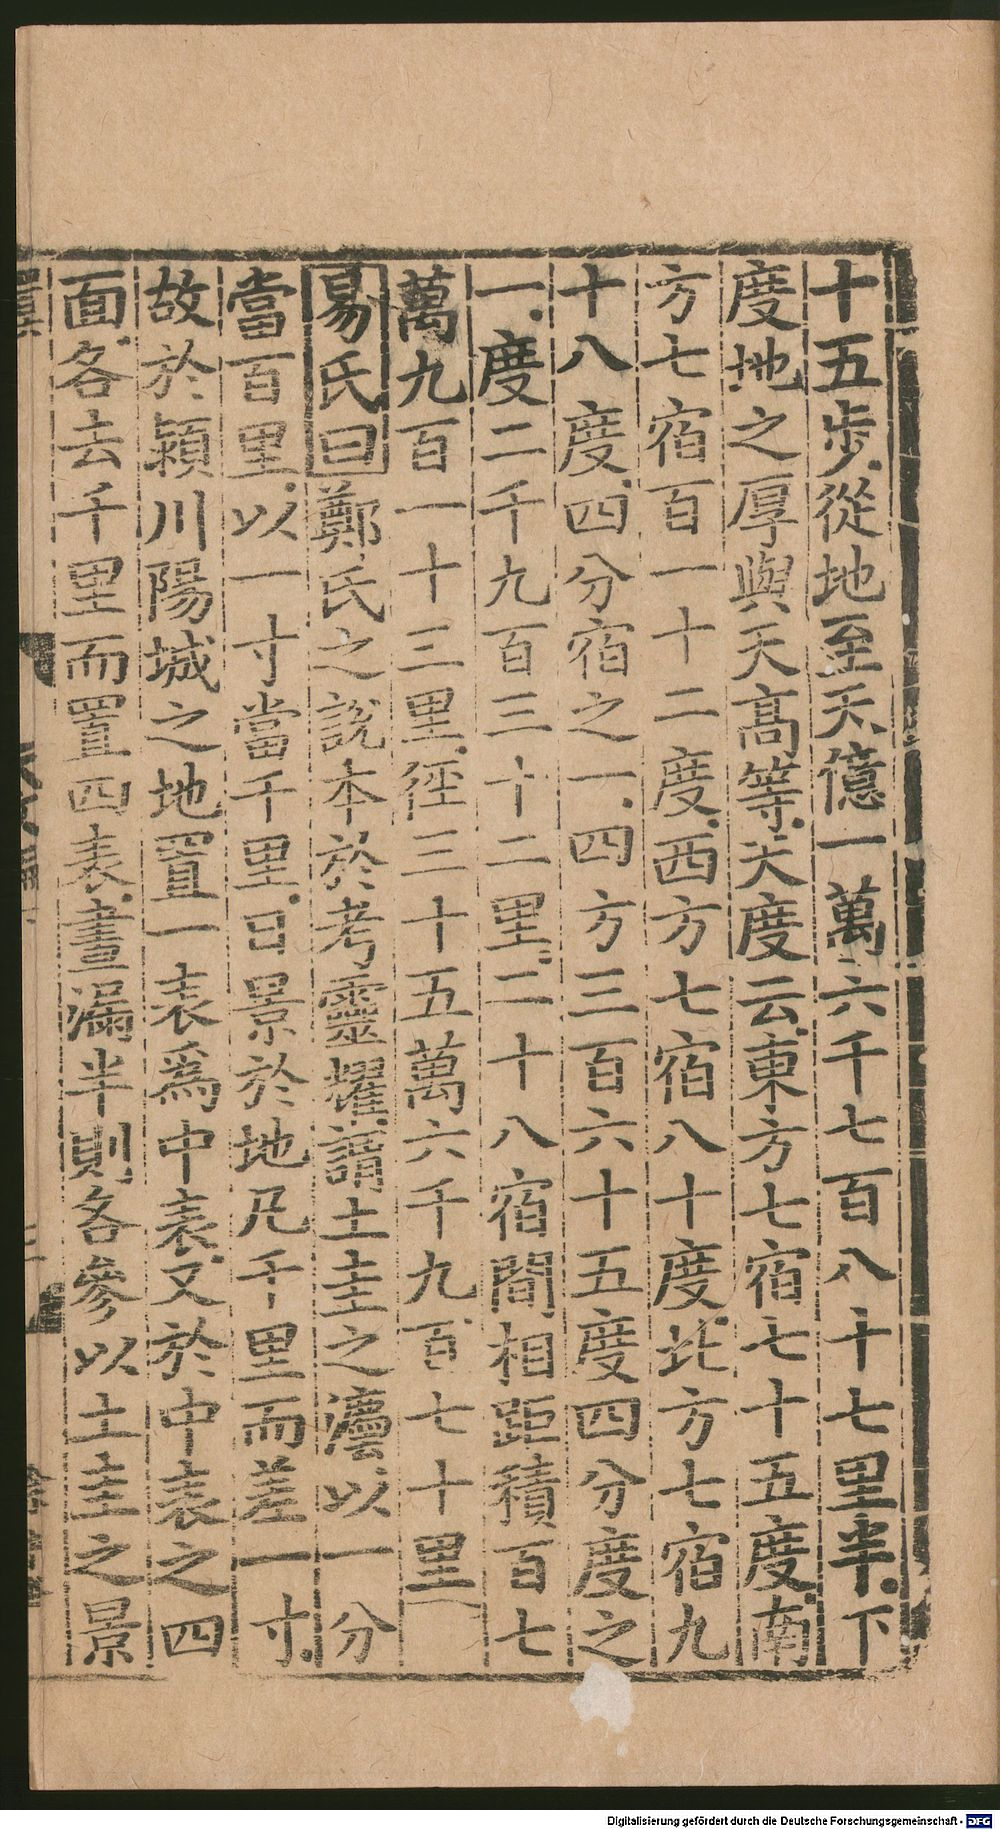 十五步從地至天億一萬六千七百八十七里半下
度地之厚與天高等天度云東方七宿七十五度南
方七宿百一十二度西方七宿八十度北方七宿九
十八度四分宿之一四方三百六十五度四分度之
一度二千九百三十二里二十八宿間相距積百七
萬九百一十三里徑三十五萬六千九百七十里
易氏曰鄭氏之說本於考靈耀謂土圭之灋以一分
當百里以一寸當千里日景於地凡千里而差一寸
故於潁川陽城之地置一表爲中表又於中表之四
面各去千里而置四表晝漏半則各參以土圭之景
Digitalisierung gefördert durch die Deutsche Forschungsgemeinschaft - DFG